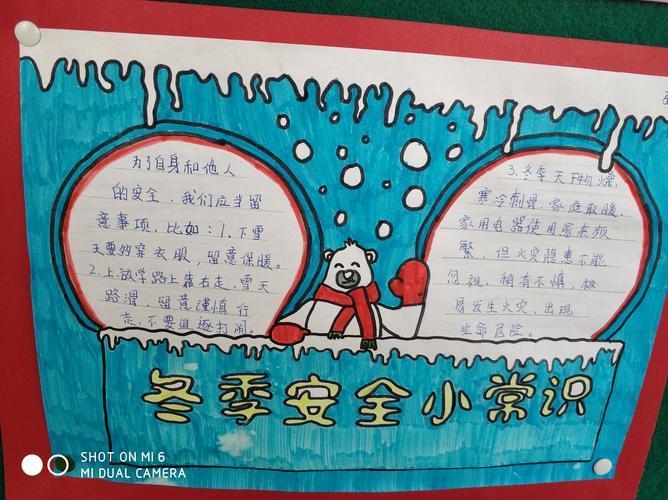 为了自身和他人
的安全，我们应当留
意事项，比如：1.下雪
天要多穿衣服，留意保暖。
2.上放学路上靠右走，雪天
路滑，留意谨慎行
走，不要追逐打闹。
3.冬季天干物燥，
寒冷刺骨，家庭取暖，
家用电器使用愈来频
繁，但火灾隐患不能
忽视，稍有不慎，极
易发生火灾，出现
生命危险。
冬季安全小常识
SHOT ON MI 6
MI DUAL CAMERA